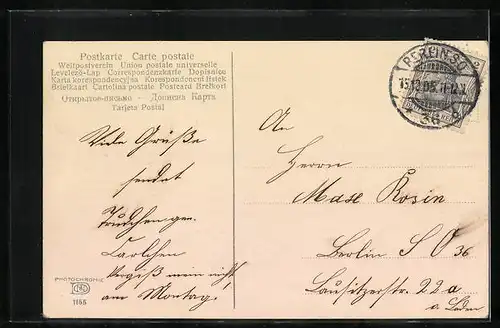 Postkarte Carte postale
Weltpostverein Union postale universelle
Levelező-Lap Correspondenzkarte Dopisnice
Karta korespondencyjna Korespondenční lístek
Briefkaart Cartolina postale Postcard Brefkort
Открытое письмо – Дописна Карта
Tarjeta Postal
BERLIN S.O.
36
Viele Grüße
sendet
Trudchen gen.
Carlchen
Vergiß mein nicht
am Montag!
PHOTOCHROMIE
1155
An
Herrn
Max Rosin
Berlin S O 36
Lausitzerstr. 22a
a. Laden